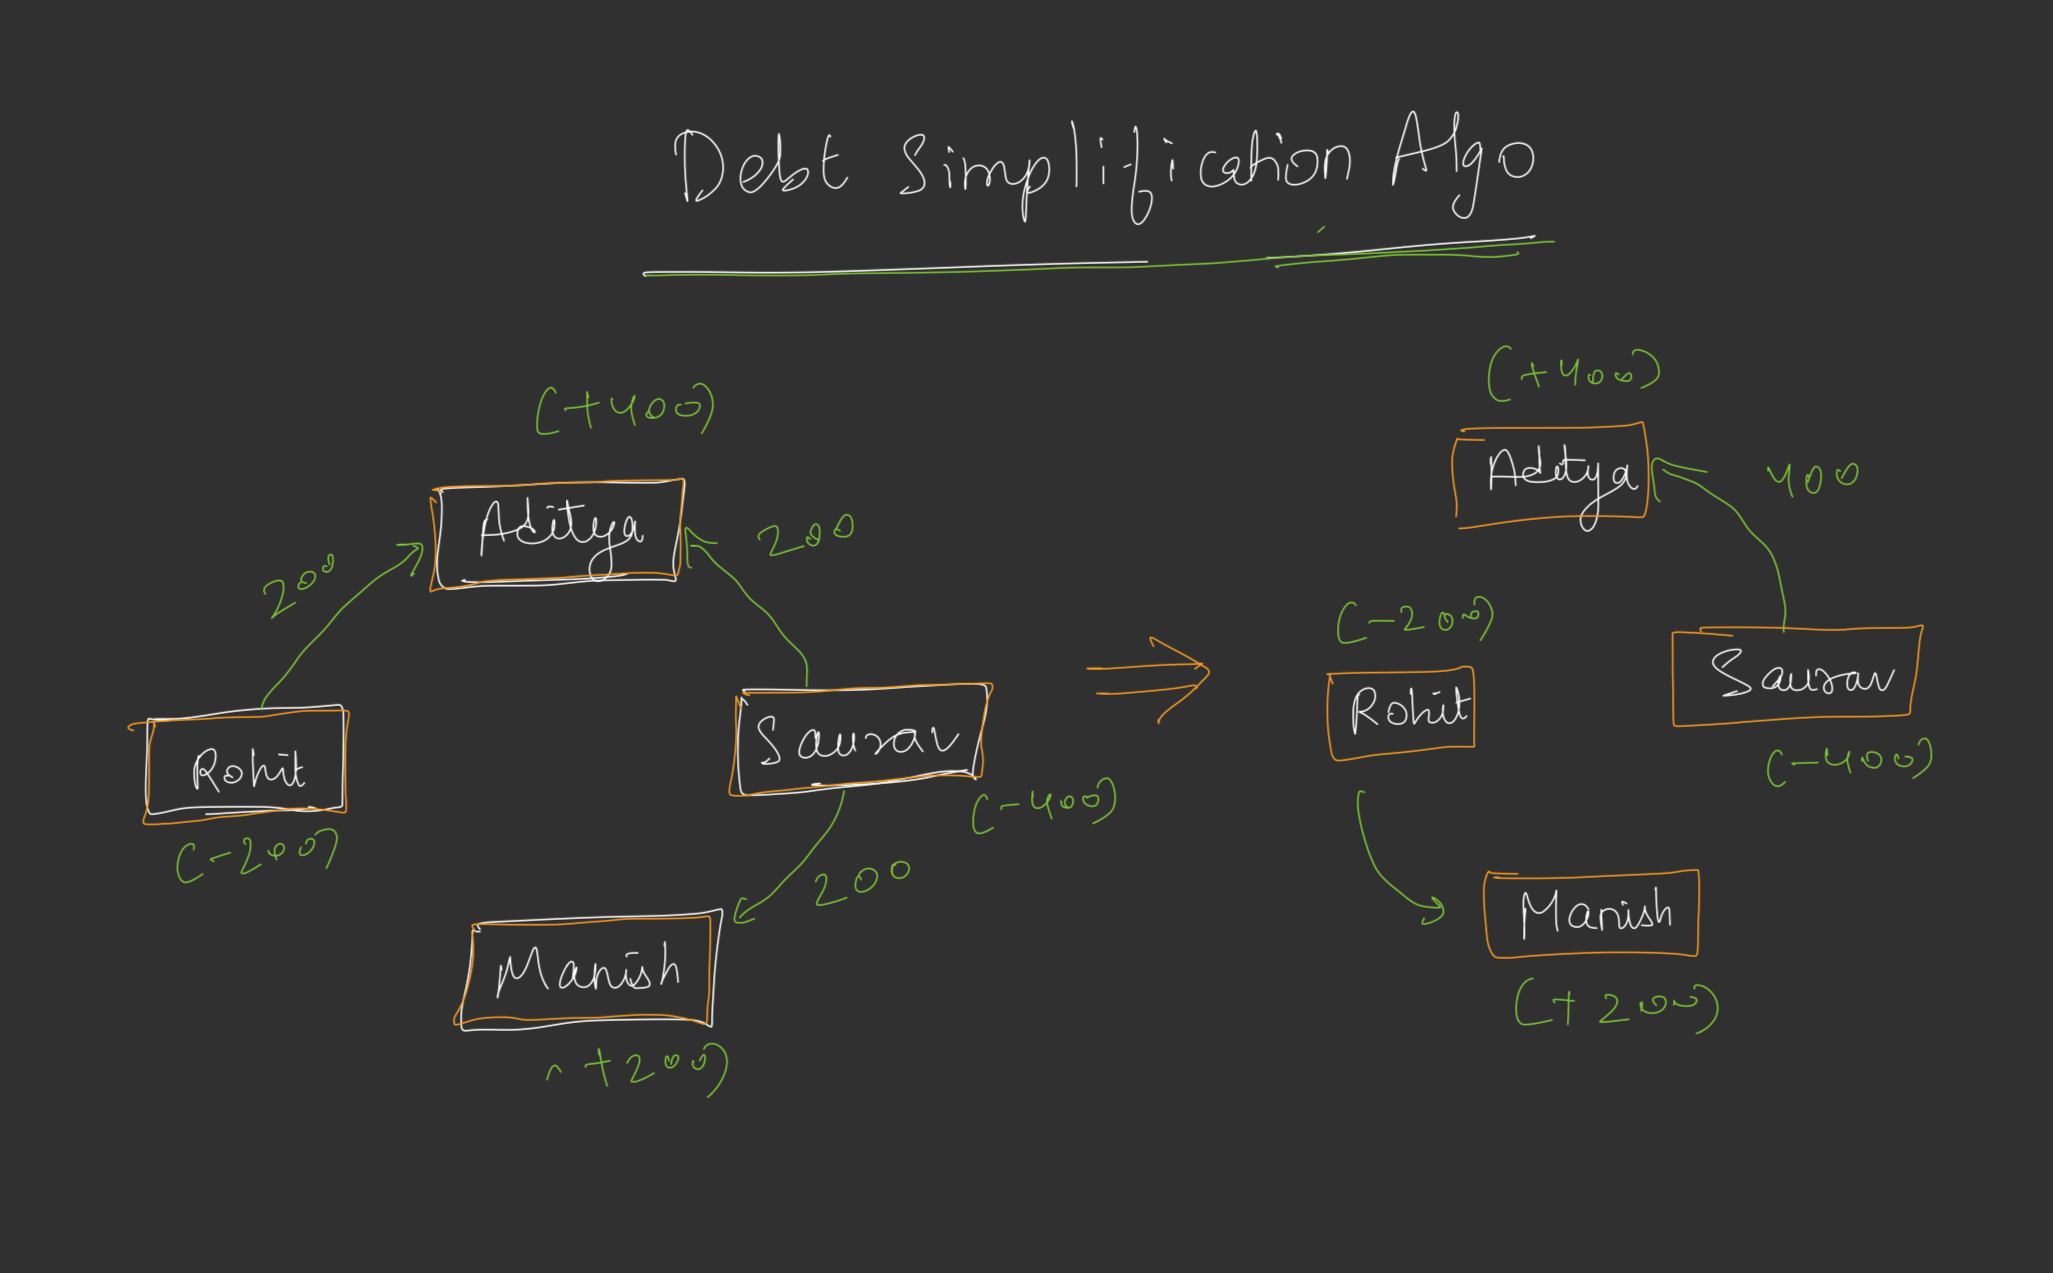 Debt Simplification Algo
(+400)
Aditya
200
200
Rohit
(-200)
Saurav
(-400)
200
Manish
+200)
(+400)
Aditya
400
(-200)
Rohit
Saurav
(-400)
Manish
(+200)